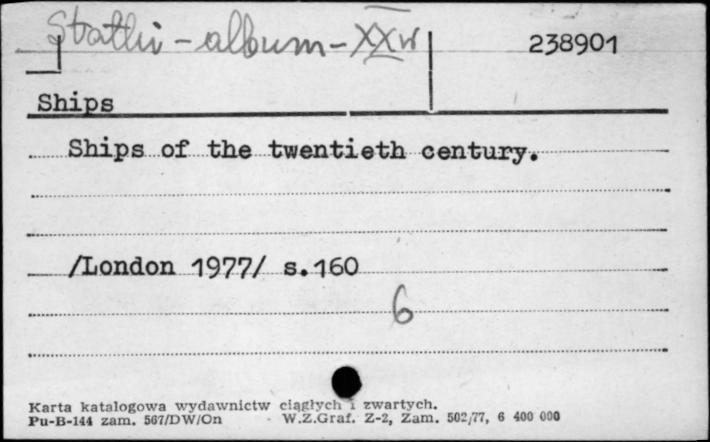 Statki - album - XX w
238901
Ships
Ships of the twentieth century.
/London 1977/ s.160
6
Karta katalogowa wydawnictw ciągłych i zwartych.
Pu-B-144 zam. 567/DW/On W.Z.Graf. Z-2, Zam. 502/77, 6 400 000